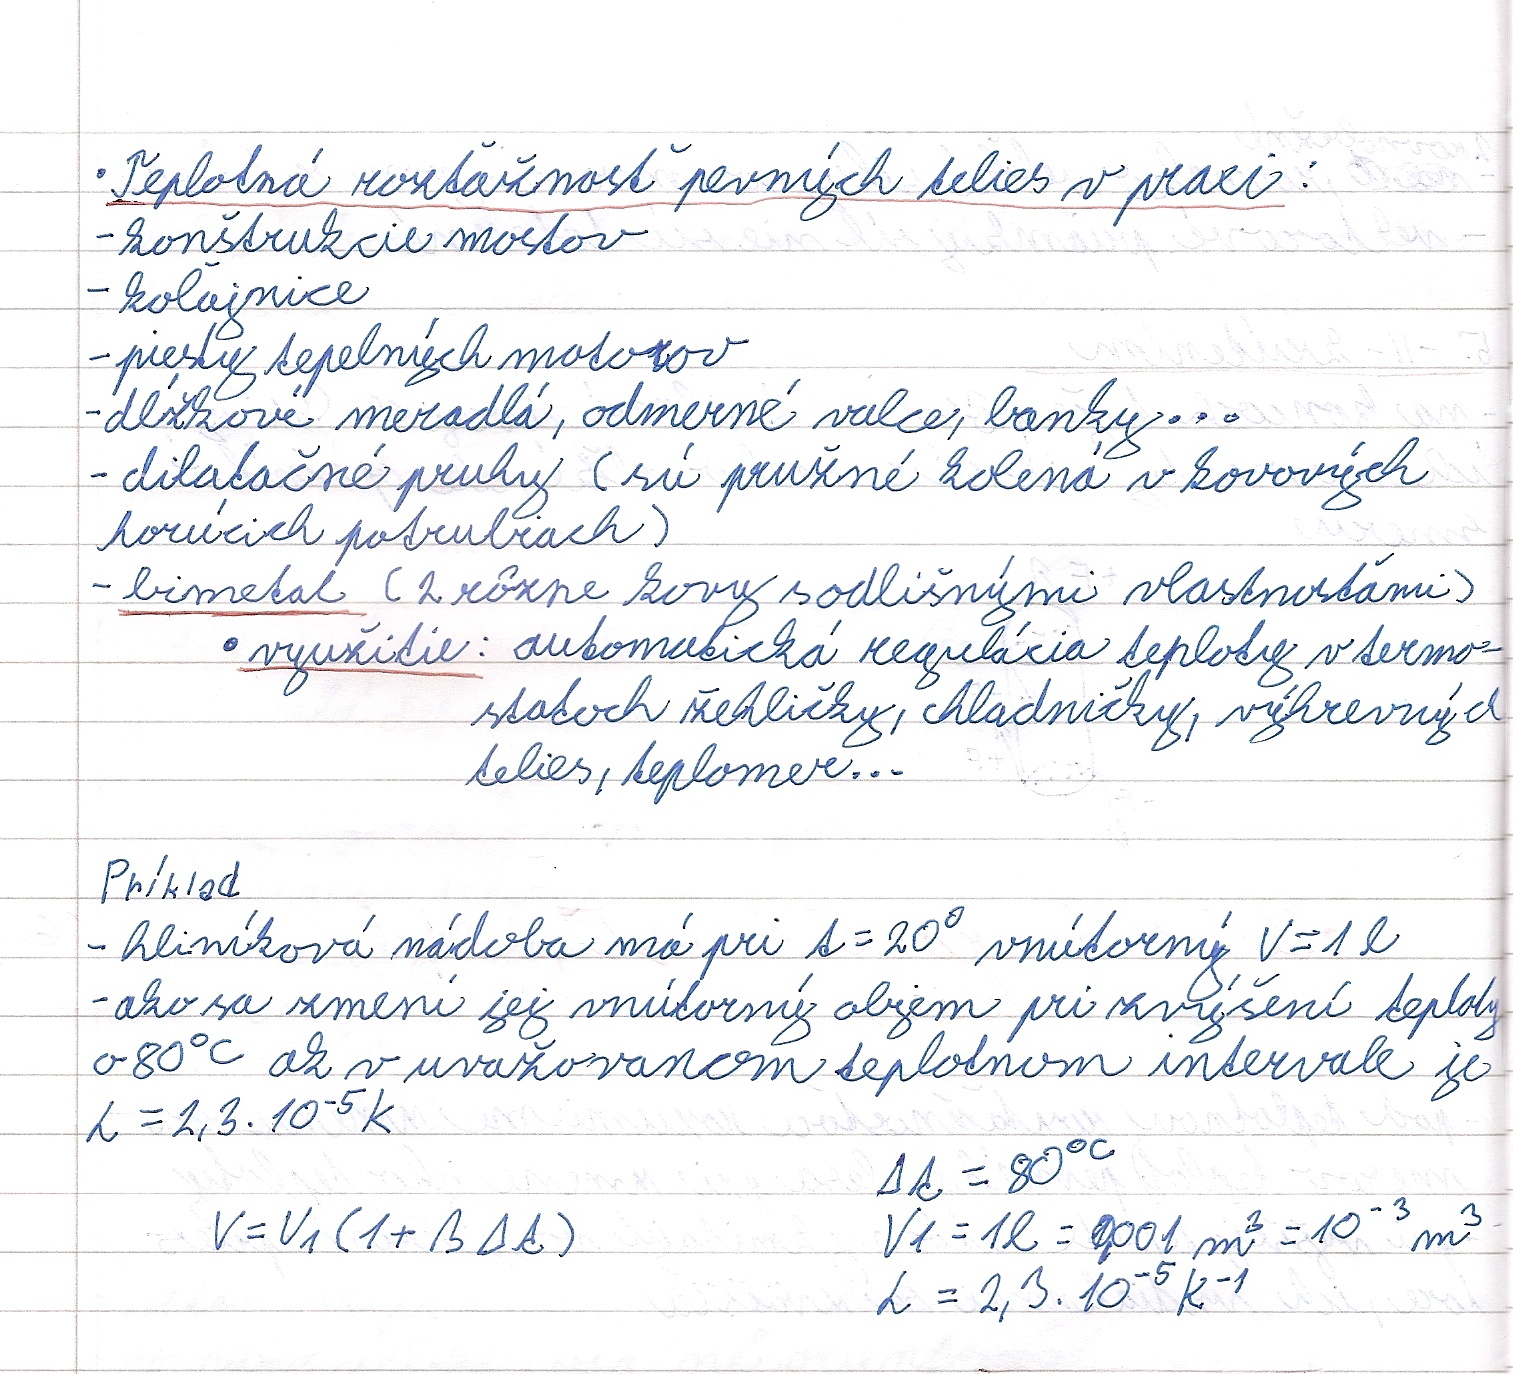 • Teplotná rozťažnosť pevných telies v praxi:
- konštrukcie mostov
- koľajnice
- piesty tepelných motorov
- dĺžkové meradlá, odmerné valce, banky...
- dilatačné pruhy (sú pružné kolená v kovových
horúcich potrubiach)
- bimetal (2 rôzne kovy s odlišnými vlastnosťami)
• využitie: automatická regulácia teploty v termo-
statoch žehličky, chladničky, výhrevných
telies, teplomer...
Príklad
- hliníková nádoba má pri t = 20° vnútorný V = 1 l
- ako sa zmení jej vnútorný objem pri zvýšení teploty
o 80°C ak v uvažovanom teplotnom intervale je
α = 2,3 . 10⁻⁵ K
Δt = 80°C
V = V₁ (1 + β Δt) V1 = 1l = 0,001 m³ = 10⁻³ m³
α = 2,3 . 10⁻⁵ K⁻¹